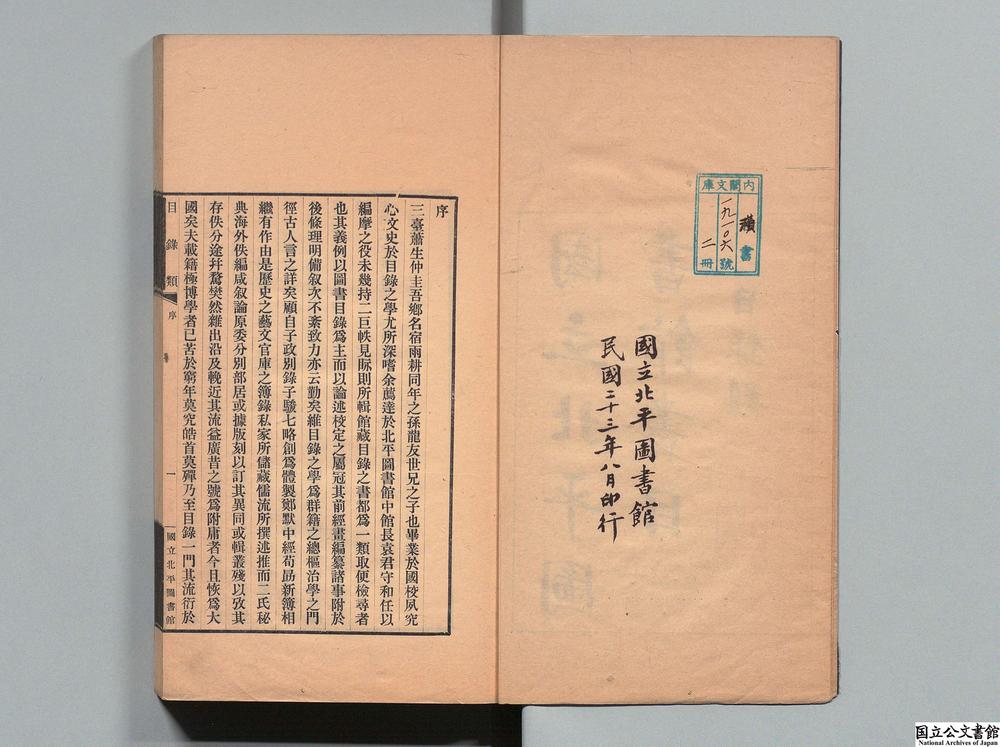 內閣文庫
漢書
一九一〇六號
二冊
國立北平圖書館
民國二十三年八月印行
序
三臺蕭生仲圭吾鄉名宿雨耕同年之孫龍友世兄之子也畢業於國校夙究
心文史於目錄之學尤所深嗜余薦達於北平圖書館中館長袁君守和任以
編摩之役未幾持二巨帙見眎則所輯館藏目錄之書都爲一類取便檢尋者
也其義例以圖書目錄爲主而以論述校定之屬冠其前經畫編纂諸事附於
後條理明備叙次不紊致力亦云勤矣維目錄之學爲群籍之總樞治學之門
徑古人言之詳矣顧自子政別錄子駿七略創爲體製鄭默中經荀勗新簿相
繼有作由是歷史之藝文官庫之簿錄私家所儲藏儒流所撰述推而二氏秘
典海外佚編咸叙論原委分別部居或據版刻以訂其異同或輯叢殘以攷其
存佚分途幷騖樊然雜出沿及輓近其流益廣昔之號爲附庸者今且恢爲大
國矣夫載籍極博學者已苦於窮年莫究皓首莫殫乃至目錄一門其流衍於
目錄類
序
一
國立北平圖書館
国立公文書館
National Archives of Japan